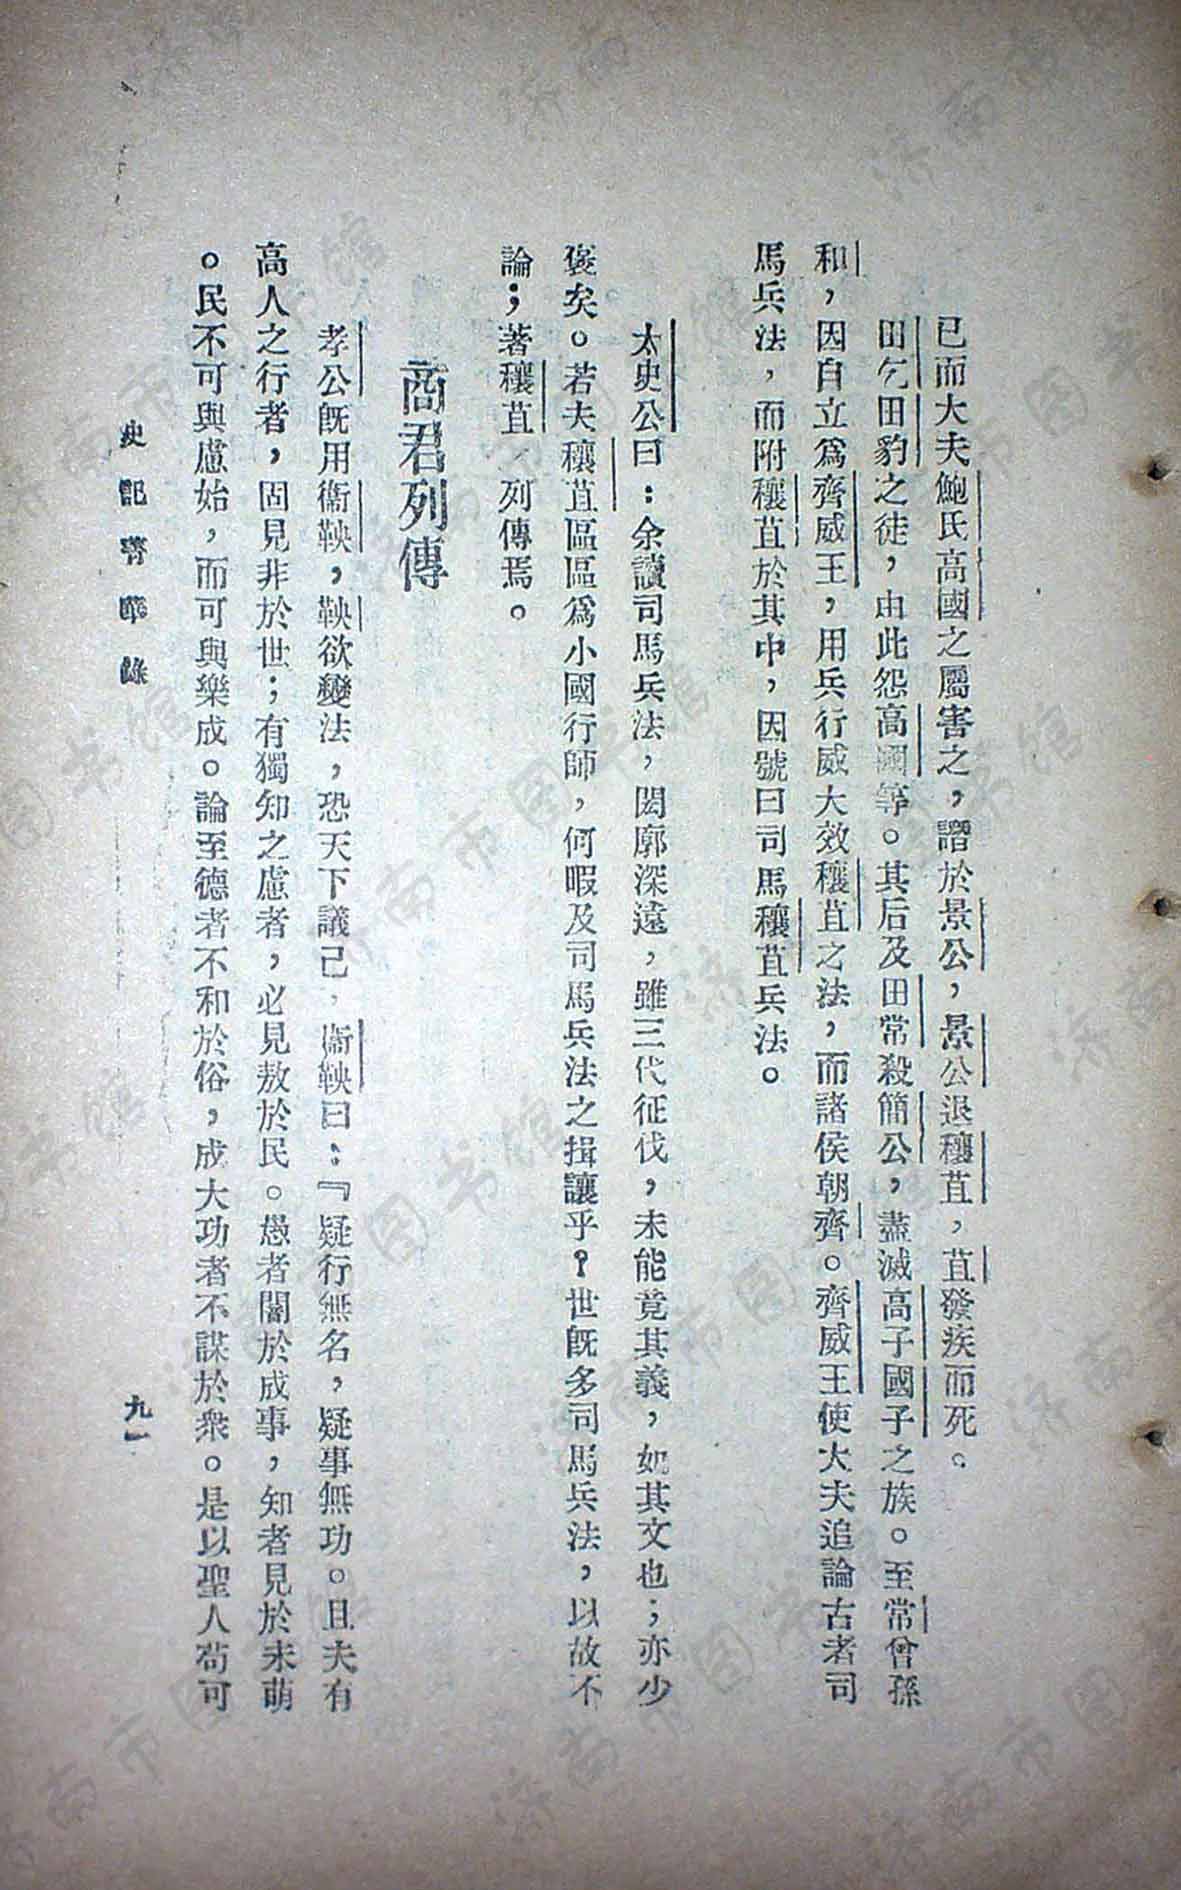 已而大夫鮑氏高國之屬害之，譖於景公，景公退穰苴，苴發疾而死。
田乞田豹之徒，由此怨高國等。其后及田常殺簡公，盡滅高子國子之族。至常曾孫
和，因自立爲齊威王，用兵行威大效穰苴之法，而諸侯朝齊。齊威王使大夫追論古者司
馬兵法，而附穰苴於其中，因號曰司馬穰苴兵法。
太史公曰：余讀司馬兵法，閎廓深遠，雖三代征伐，未能竟其義，如其文也；亦少
褒矣。若夫穰苴區區爲小國行師，何暇及司馬兵法之揖讓乎？世旣多司馬兵法，以故不
論；著穰苴列傳焉。
商君列傳
孝公旣用衞鞅，鞅欲變法，恐天下議己，衞鞅曰：『疑行無名，疑事無功。且夫有
高人之行者，固見非於世；有獨知之慮者，必見敖於民。愚者闇於成事，知者見於未萌
。民不可與慮始，而可與樂成。論至德者不和於俗，成大功者不謀於衆。是以聖人苟可
史記菁華錄
九一
济南市图书馆